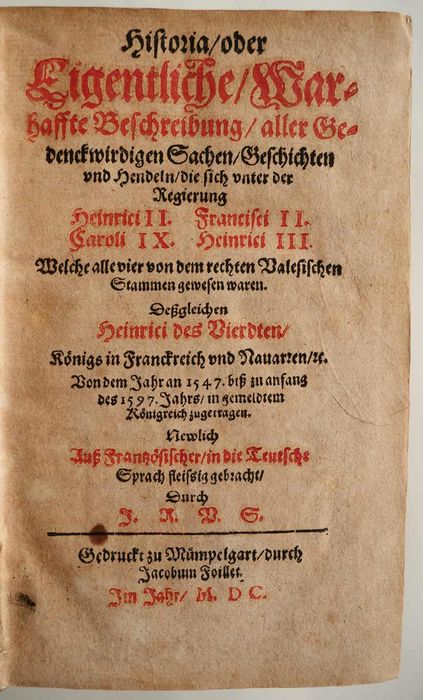 Historia/oder
Eigentliche/War-
haffte Beschreibung/aller Ge-
denckwirdigen Sachen/Geschichten
vnd Hendeln/die sich vnter der
Regierung
Heinrici II. Francisci II.
Caroli IX. Heinrici III.
Welche alle vier von dem rechten Valesischen
Stammen gewesen waren.
Deßgleichen
Heinrici des Vierdten/
Königs in Franckreich vnd Nauarren/ꝛc.
Von dem Jahr an 1547. biß zu anfang
des 1597. Jahrs/in gemeldtem
Königreich zugetragen.
Newlich
Auß Frantzösischer/in die Teutsche
Sprach fleissig gebracht/
Durch
J. R. V. S.
Gedruckt zu Mümpelgart/durch
Jacobum Foillet.
Im Jahr/ M. D C.